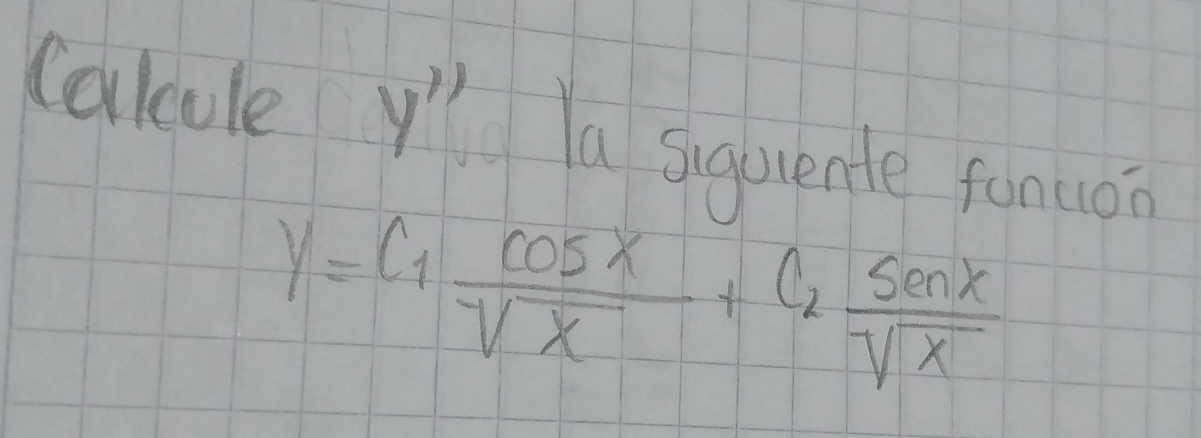 Calcule y'' la siguiente función
y = C₁ cos x / √x + C₂ sen x / √x